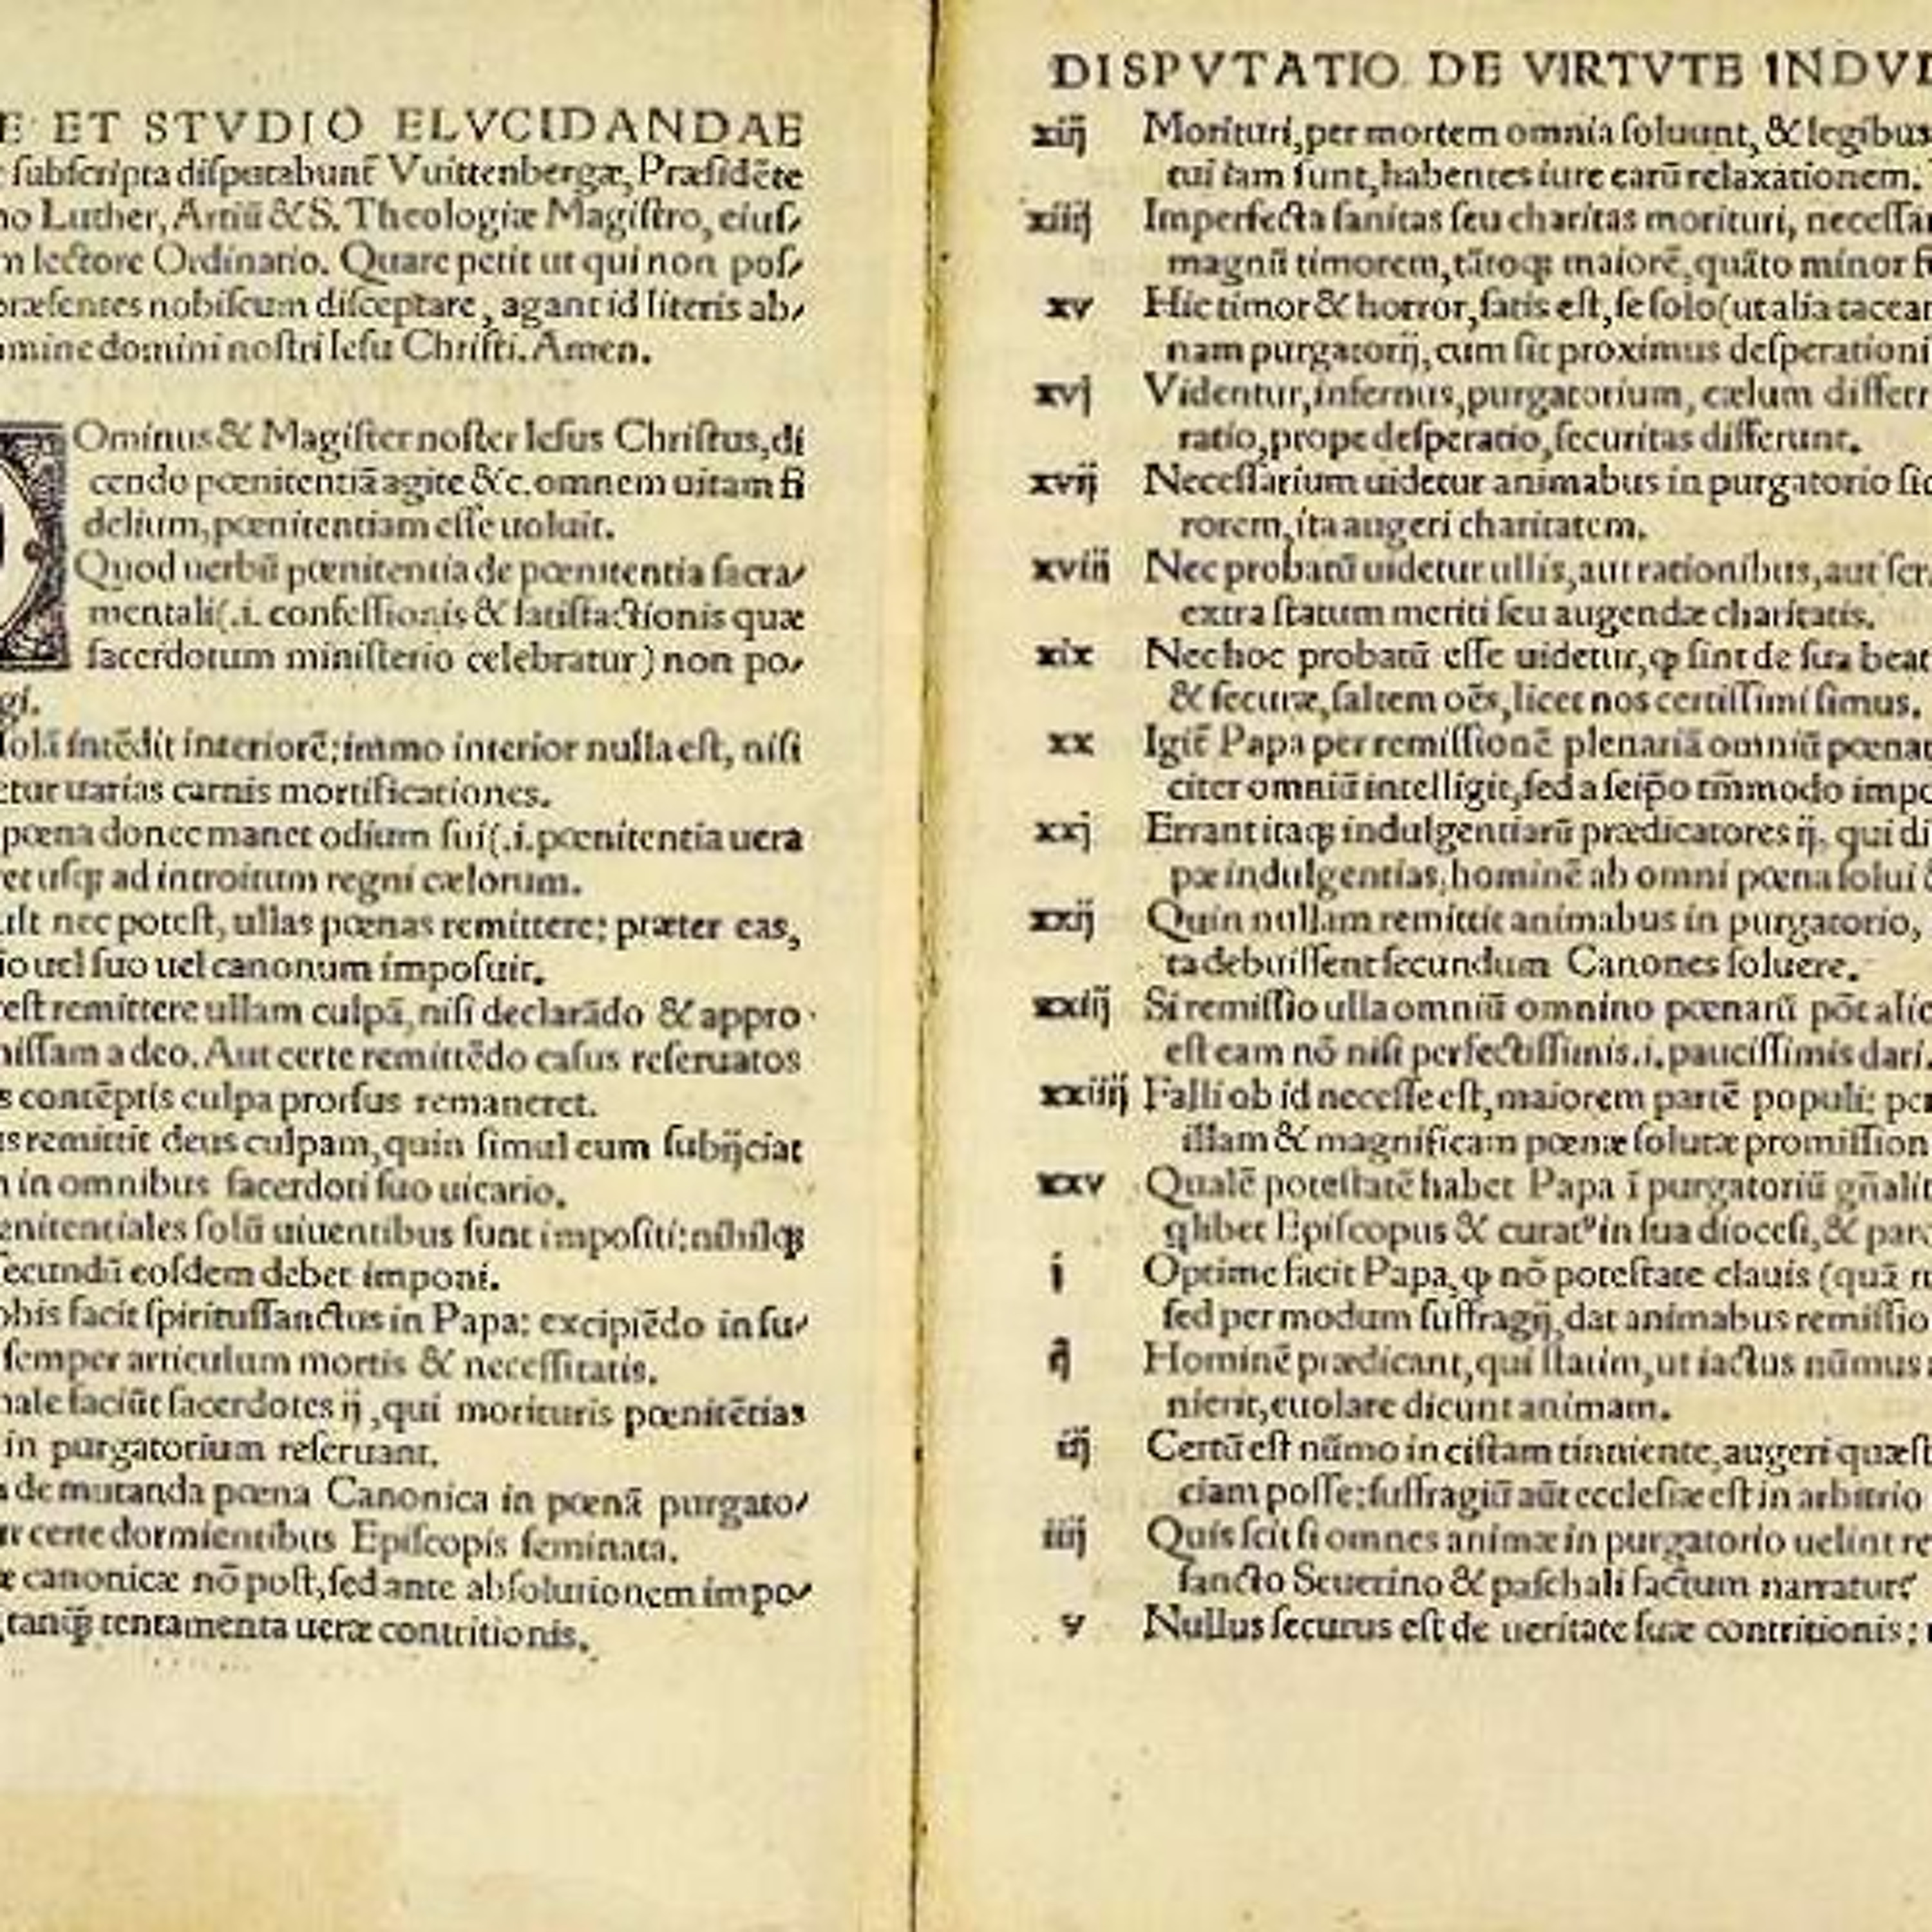 E ET STVDIO ELVCIDANDAE
subscripta disputabunt̃ Vuittenbergæ, Præsidẽte
Luther, Artiũ & S. Theologiæ Magistro, eius/
lectore Ordinario. Quare petit ut qui non pos/
præsentes nobiscum disceptare, agant id literis ab/
domini nostri Iesu Christi. Amen.
Ominus & Magister noster Iesus Christus, di
cendo pœnitentiã agite &c. omnem uitam fi
delium, pœnitentiam esse uoluit.
Quod uerbũ pœnitentia de pœnitentia sacra/
mentali (.i. confessionis & satisfactionis quæ
sacerdotum ministerio celebratur) non po/
gi.
solã intẽdit interiorẽ; immo interior nulla est, nisi
etur uarias carnis mortificationes.
pœna donec manet odium sui (.i. pœnitentia uera
et usqꝫ ad introitum regni cælorum.
ult nec potest, ullas pœnas remittere; præter eas,
io uel suo uel canonum imposuit.
est remittere ullam culpã, nisi declarãdo & appro
missam a deo. Aut certe remittẽdo casus reseruatos
s contẽptis culpa prorsus remaneret.
us remittit deus culpam, quin simul eum subijciat
in omnibus sacerdoti suo uicario.
enitentiales solũ uiuentibus sunt impositi; nihilqꝫ
secundũ eosdem debet imponi.
obis facit spiritussanctus in Papa; excipiẽdo in su/
semper articulum mortis & necessitatis.
male faciũt sacerdotes ij, qui morituris pœnitẽtias
in purgatorium reseruant.
de mutanda pœna Canonica in pœnã purgato/
certe dormientibus Episcopis seminata.
canonicæ nõ post, sed ante absolutionem impo/
tanqꝫ̃ tentamenta ueræ contritionis.
DISPVTATIO DE VIRTVTE INDVL
xiij Morituri, per mortem omnia soluunt, & legibus
tui iam sunt, habentes iure earũ relaxationem.
xiiij Imperfecta sanitas seu charitas morituri, necessa
magnũ timorem, tãtoqꝫ maiorẽ, quãto minor
xv Hic timor & horror, satis est, se solo (ut alia tacea
nam purgatorij, cum sit proximus desperationi
xvj Videntur, infernus, purgatorium, cælum differ
ratio, prope desperatio, securitas differunt.
xvij Necessarium uidetur animabus in purgatorio sic
rorem, ita augeri charitatem.
xviij Nec probatũ uidetur ullis, aut rationibus, aut scr
extra statum meriti seu augendæ charitatis.
xix Nec hoc probatũ esse uidetur, ꝙ sint de sua beat
& securæ, saltem oẽs, licet nos certissimi simus.
xx Igit̃ Papa per remissionẽ plenariã omniũ pœna
citer omniũ intelligit, sed a seip̃o tm̃modo impo
xxj Errant itaqꝫ indulgentiarũ prædicatores ij, qui di
pæ indulgentias, hominẽ ab omni pœna solui
xxij Quin nullam remittit animabus in purgatorio,
ta debuissent secundum Canones soluere.
xxiij Si remissio ulla omniũ omnino pœnarũ põt alic
est eam nõ nisi perfectissimis .i. paucissimis dari.
xxiiij Falli ob id necesse est, maiorem partẽ populi; per
illam & magnificam pœnæ solutæ promission
xxv Qualẽ potestatẽ habet Papa ĩ purgatoriũ gñalit
qlibet Episcopus & curatꝰ in sua diocesi, & par
j Optime facit Papa, ꝙ nõ potestate clauis (quã n
sed per modum suffragij, dat animabus remissio
ij Hominẽ prædicant, qui statim, ut iactus nũmus
nierit, euolare dicunt animam.
iij Certũ est nũmo in cistam tinniente, augeri quæst
ciam posse; suffragiũ aũt ecclesiæ est in arbitrio
iiij Quis scit si omnes animæ in purgatorio uelint re
sancto Seuerino & paschali factum narratur?
v Nullus securus est de ueritate suæ contritionis;